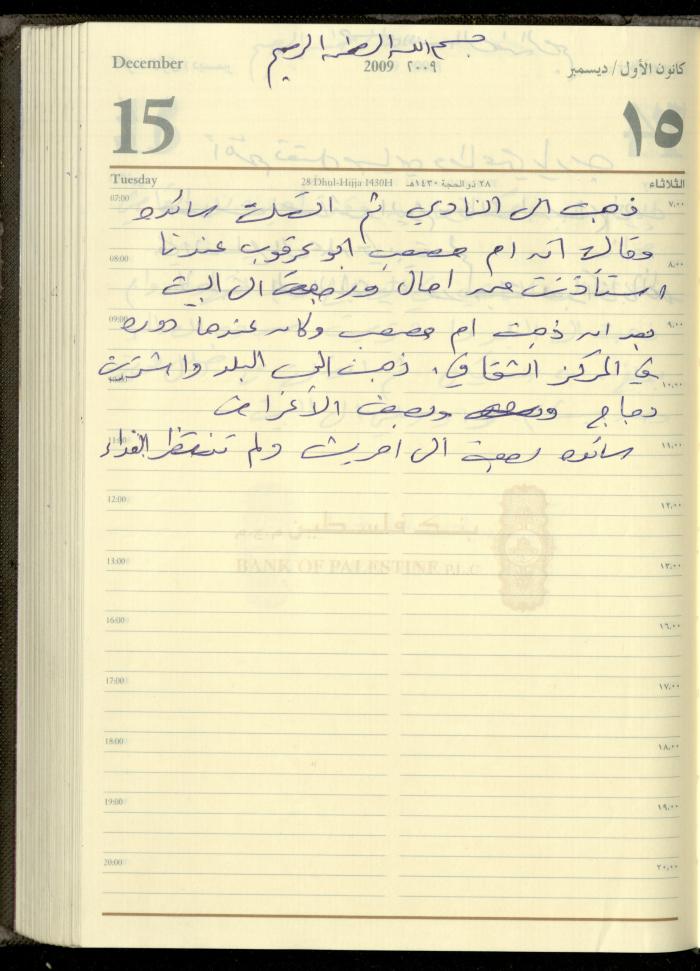 بسم الله الرحمن الرحيم
December 2009 ٢٠٠٩ كانون الأول / ديسمبر
15 ١٥
Tuesday 28 Dhul-Hijja 1430H ٢٨ ذو الحجة ١٤٣٠هـ الثلاثاء
07:00 ٧,٠٠
ذهبت الى النادي ثم اتصلت سائده
وقالت انه ام مصعب ابو عرقوب عندنا
08:00 ٨,٠٠
استأذنت من امال ورجعت الى البيت
09:00 ٩,٠٠
بعد ان ذهبت ام مصعب وكان عندها دوره
في المركز الثقافي، ذهبت الى البلد واشتريت
10:00 ١٠,٠٠
دجاج وبعض الأغراض
11:00 ١١,٠٠
سائده الى ولم تنتظر الغداء
12:00 ١٢,٠٠
بنك فلسطين
BANK OF PALESTINE P.L.C
13:00 ١٣,٠٠
16:00 ١٦,٠٠
17:00 ١٧,٠٠
18:00 ١٨,٠٠
19:00 ١٩,٠٠
20:00 ٢٠,٠٠